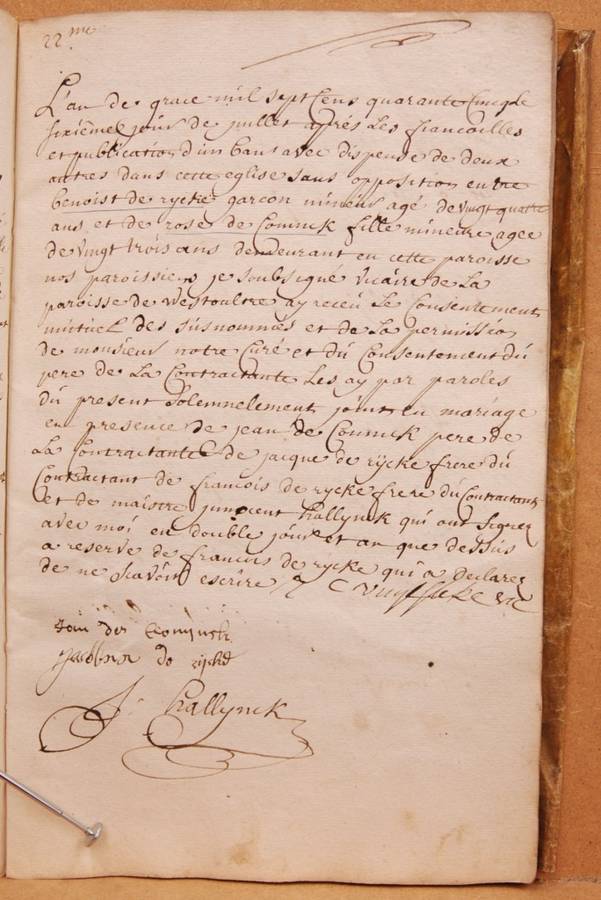 22.me
L'an de grace mil sept Cens quarante Cincq le
sixiême jour de juillet aprés Les fiancailles
et publication d'un bans avec dispense de deux
autres dans cette eglise sans opposition entre
benoist de rycke garcon mineur agé de vingt quatre
ans et de rose de Coninck fille mineure agee
de vingt trois ans demeurant en cette paroisse
nos paroissiens je soubsigné vicaire de La
paroisse de Westoultre ay receu Le Consentement
mutuel des susnommés et de La permission
de monsieur notre Curé et du Consentement du
pere de La Contractante Les ay par paroles
du present solemnelement joint en mariage
en presence de jean de Coninck pere de
La Contractante de jacque de rijcke frere du
Contractant de francois de rycke frere du Contractant
et de maistre innocent hallynck qui ont signez
avec moi en double jour et an que dessus
a reserve de francois de rycke qui a declarez
de ne scavoir escrire
Jan de Coninck
Jacobus de rijcke
J: hallynck